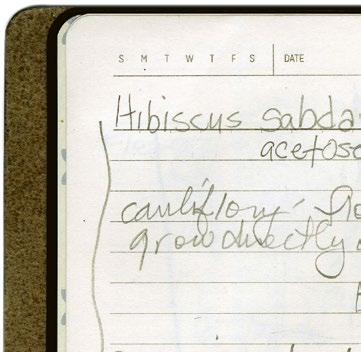 S M T W T F S DATE
Hibiscus sabda
acetose
cauliflory-
grow directly